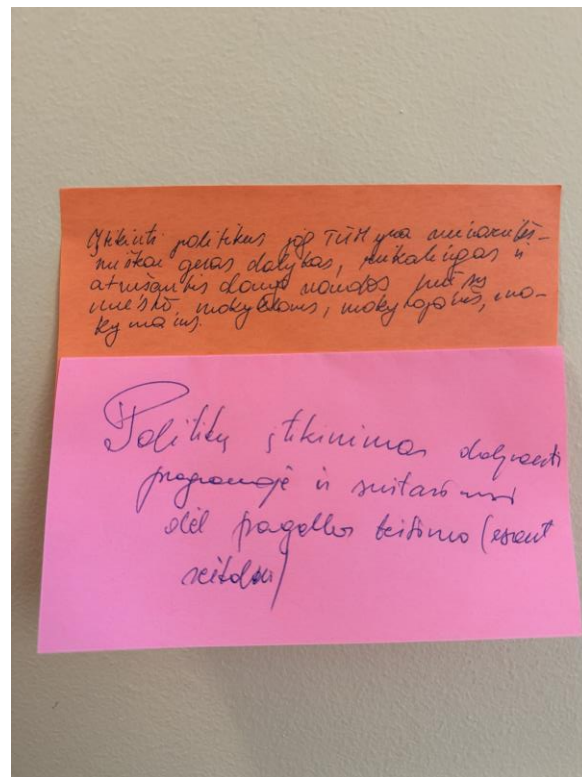 Įtikinti politikus jog TŪM yra
niškai geras dalykas, reikalingas ir
atnešantis daug naudos mūsų
miesto mokykloms, mokytojams, mo-
kymams.
Politikų įtikinimas dalyvauti
programoje ir susitarimai
dėl pagalbos teikimo (esant
reikalui)